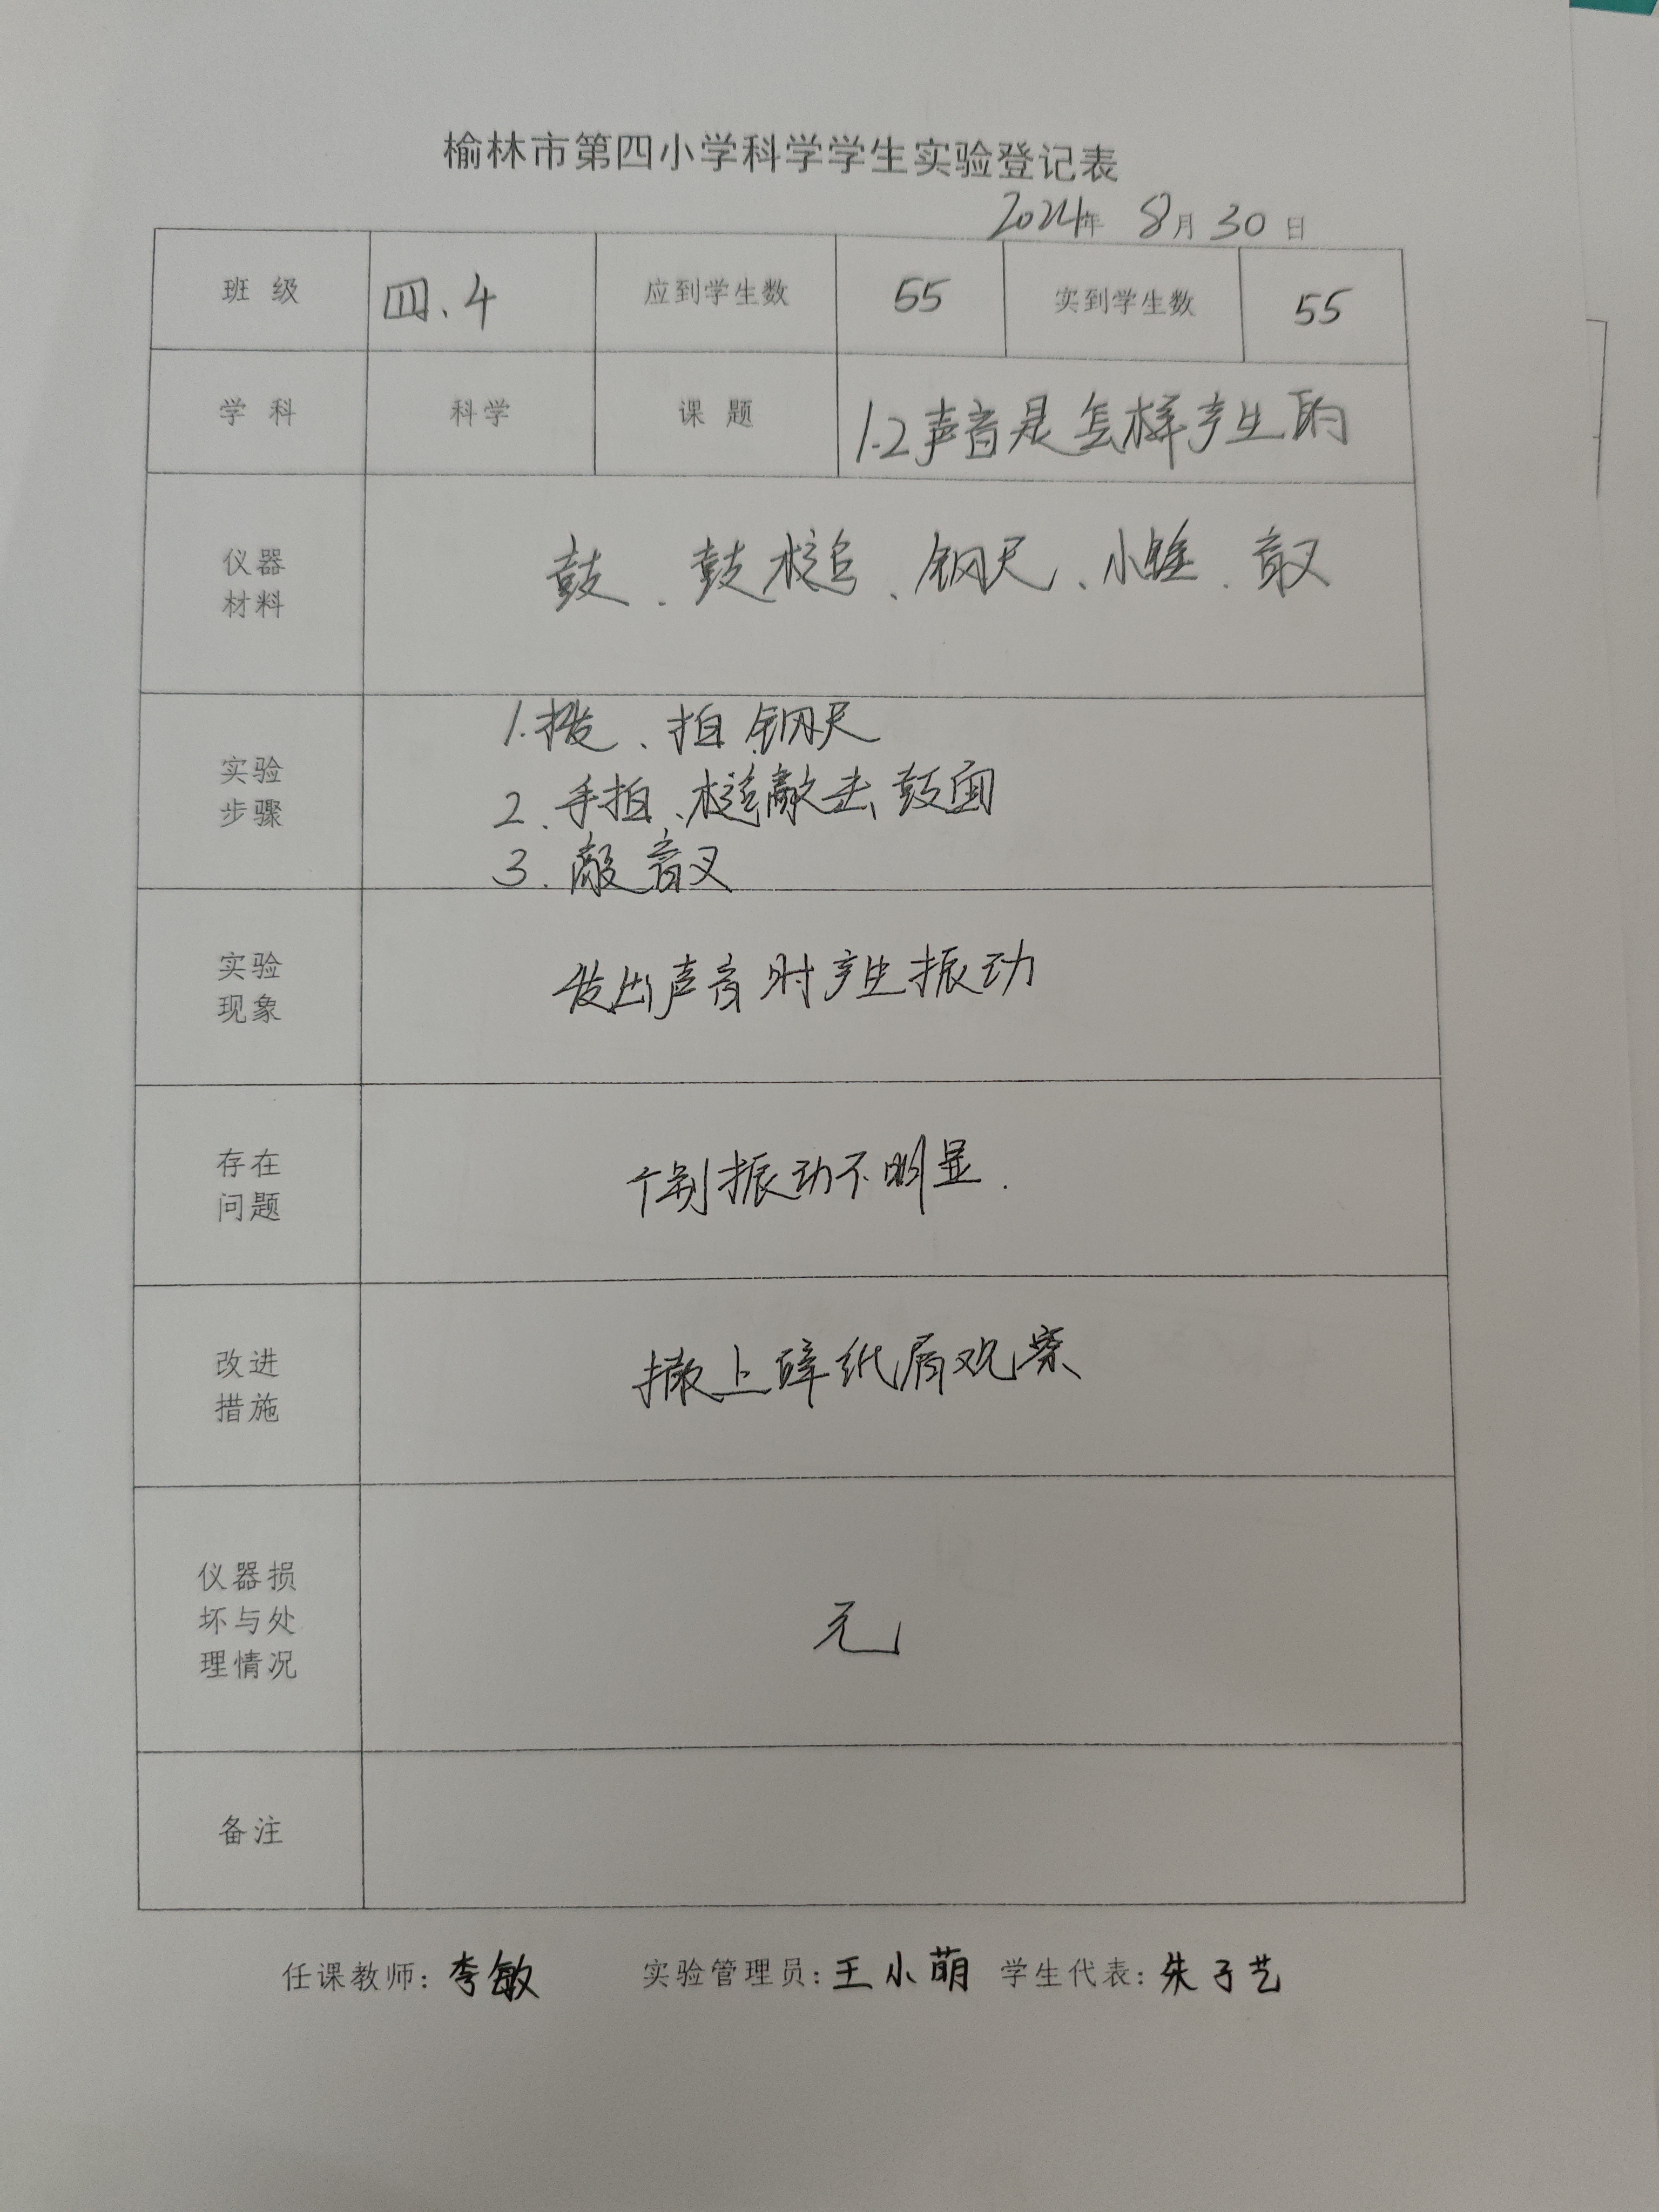 榆林市第四小学科学学生实验登记表
2024年 8月30日
班 级 四.4 应到学生数 55 实到学生数 55
学 科 科学 课 题 1.2声音是怎样产生的
仪器
材料
鼓、鼓槌、钢尺、小锤、音叉
实验
步骤
1.拨、拍钢尺
2.手拍、槌敲击鼓面
3.敲音叉
实验
现象
发出声音时产生振动
存在
问题
个别振动不明显.
改进
措施
撒上碎纸屑观察
仪器损
坏与处
理情况
无
备注
任课教师:李敏 实验管理员:王小萌 学生代表:朱子艺